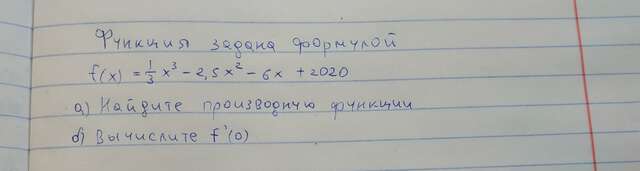 Функция задана формулой
f(x) = 1/3 x³ - 2,5x² - 6x + 2020
а) Найдите производную функции
б) Вычислите f'(0)